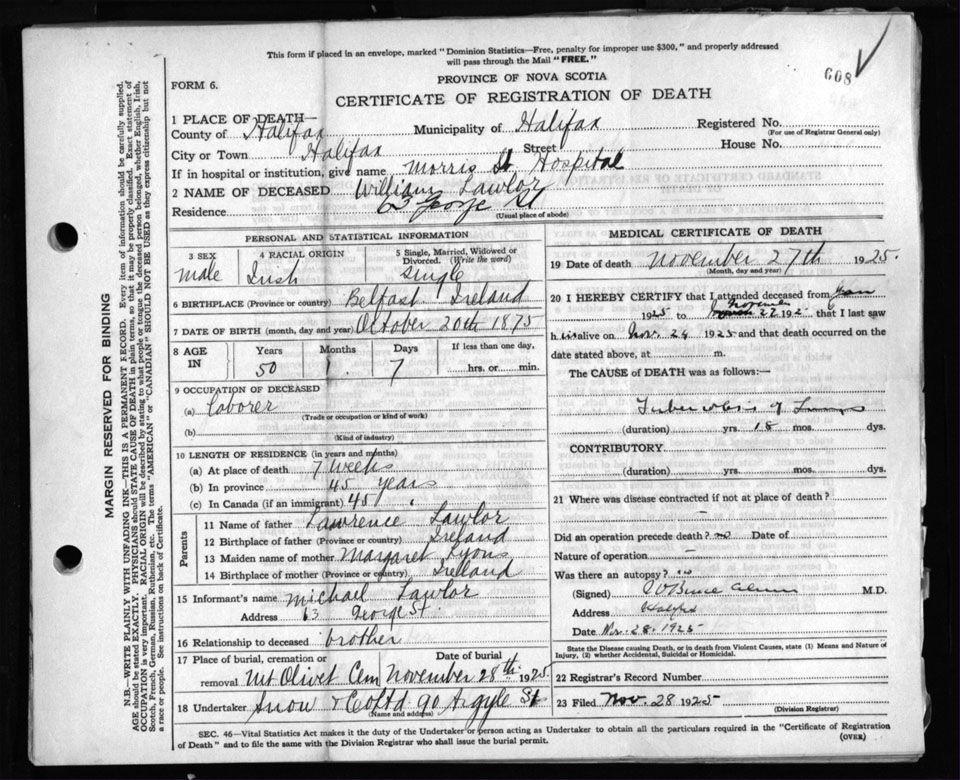 This form if placed in an envelope, marked "Dominion Statistics—Free, penalty for improper use $300," and properly addressed
will pass through the Mail "FREE."
608
PROVINCE OF NOVA SCOTIA
FORM 6.
CERTIFICATE OF REGISTRATION OF DEATH
1 PLACE OF DEATH—
County of Halifax Municipality of Halifax Registered No.
(For use of Registrar General only)
City or Town Halifax Street House No.
If in hospital or institution, give name Morris St Hospital
2 NAME OF DECEASED William Lawlor
Residence George St
(Usual place of abode)
PERSONAL AND STATISTICAL INFORMATION
3 SEX 4 RACIAL ORIGIN 5 Single, Married, Widowed or
Divorced. (Write the word)
male Irish single
6 BIRTHPLACE (Province or country) Belfast Ireland
7 DATE OF BIRTH (month, day and year) October 20th 1875
8 AGE IN Years Months Days If less than one day,
50 1 7 hrs. or min.
9 OCCUPATION OF DECEASED
(a) Laborer
(Trade or occupation or kind of work)
(b)
(Kind of industry)
10 LENGTH OF RESIDENCE (in years and months)
(a) At place of death 7 weeks
(b) In province 45 years
(c) In Canada (if an immigrant) 45 "
Parents
11 Name of father Lawrence Lawlor
12 Birthplace of father (Province or country) Ireland
13 Maiden name of mother Margaret Lyons
14 Birthplace of mother (Province or country) Ireland
15 Informant's name Michael Lawlor
Address 63 George St
16 Relationship to deceased brother
17 Place of burial, cremation or Date of burial
removal Mt Olivet Cem November 28th 1925
18 Undertaker Snow & Co Ltd 90 Argyle St
(Name and address)
MEDICAL CERTIFICATE OF DEATH
19 Date of death November 27th 1925.
(Month, day and year)
20 I HEREBY CERTIFY that I attended deceased from
November
1925 to 27 192 that I last saw
h is alive on Nov. 24 1925 and that death occurred on the
date stated above, at m.
The CAUSE of DEATH was as follows:—
Tuberculosis of Lungs
(duration) yrs. 18 mos. dys.
CONTRIBUTORY
(duration) yrs. mos. dys.
21 Where was disease contracted if not at place of death?
—
Did an operation precede death? no Date of
Nature of operation —
Was there an autopsy? no
(Signed) M.D.
Address Halifax
Date Nov. 28. 1925
State the Disease causing Death, or in death from Violent Causes, state (1) Means and Nature of
Injury, (2) whether Accidental, Suicidal or Homicidal.
22 Registrar's Record Number
23 Filed Nov. 28 1925
(Division Registrar)
SEC. 46—Vital Statistics Act makes it the duty of the Undertaker or person acting as Undertaker to obtain all the particulars required in the "Certificate of Registration
of Death" and to file the same with the Division Registrar who shall issue the burial permit. (OVER)
MARGIN RESERVED FOR BINDING
N.B.—WRITE PLAINLY WITH UNFADING INK—THIS IS A PERMANENT RECORD. Every item of information should be carefully supplied.
AGE should be stated EXACTLY. PHYSICIANS should STATE CAUSE OF DEATH in plain terms, so that it may be properly classified. Exact statement of
OCCUPATION is very important. RACIAL ORIGIN will be described by stating to what people or tongue the deceased person belonged, whether English, Irish,
Scotch, French, German, Russian, Ruthenian, etc. The terms "AMERICAN" or "CANADIAN" SHOULD NOT BE USED as they express citizenship but not
a race or people. See instructions on back of Certificate.